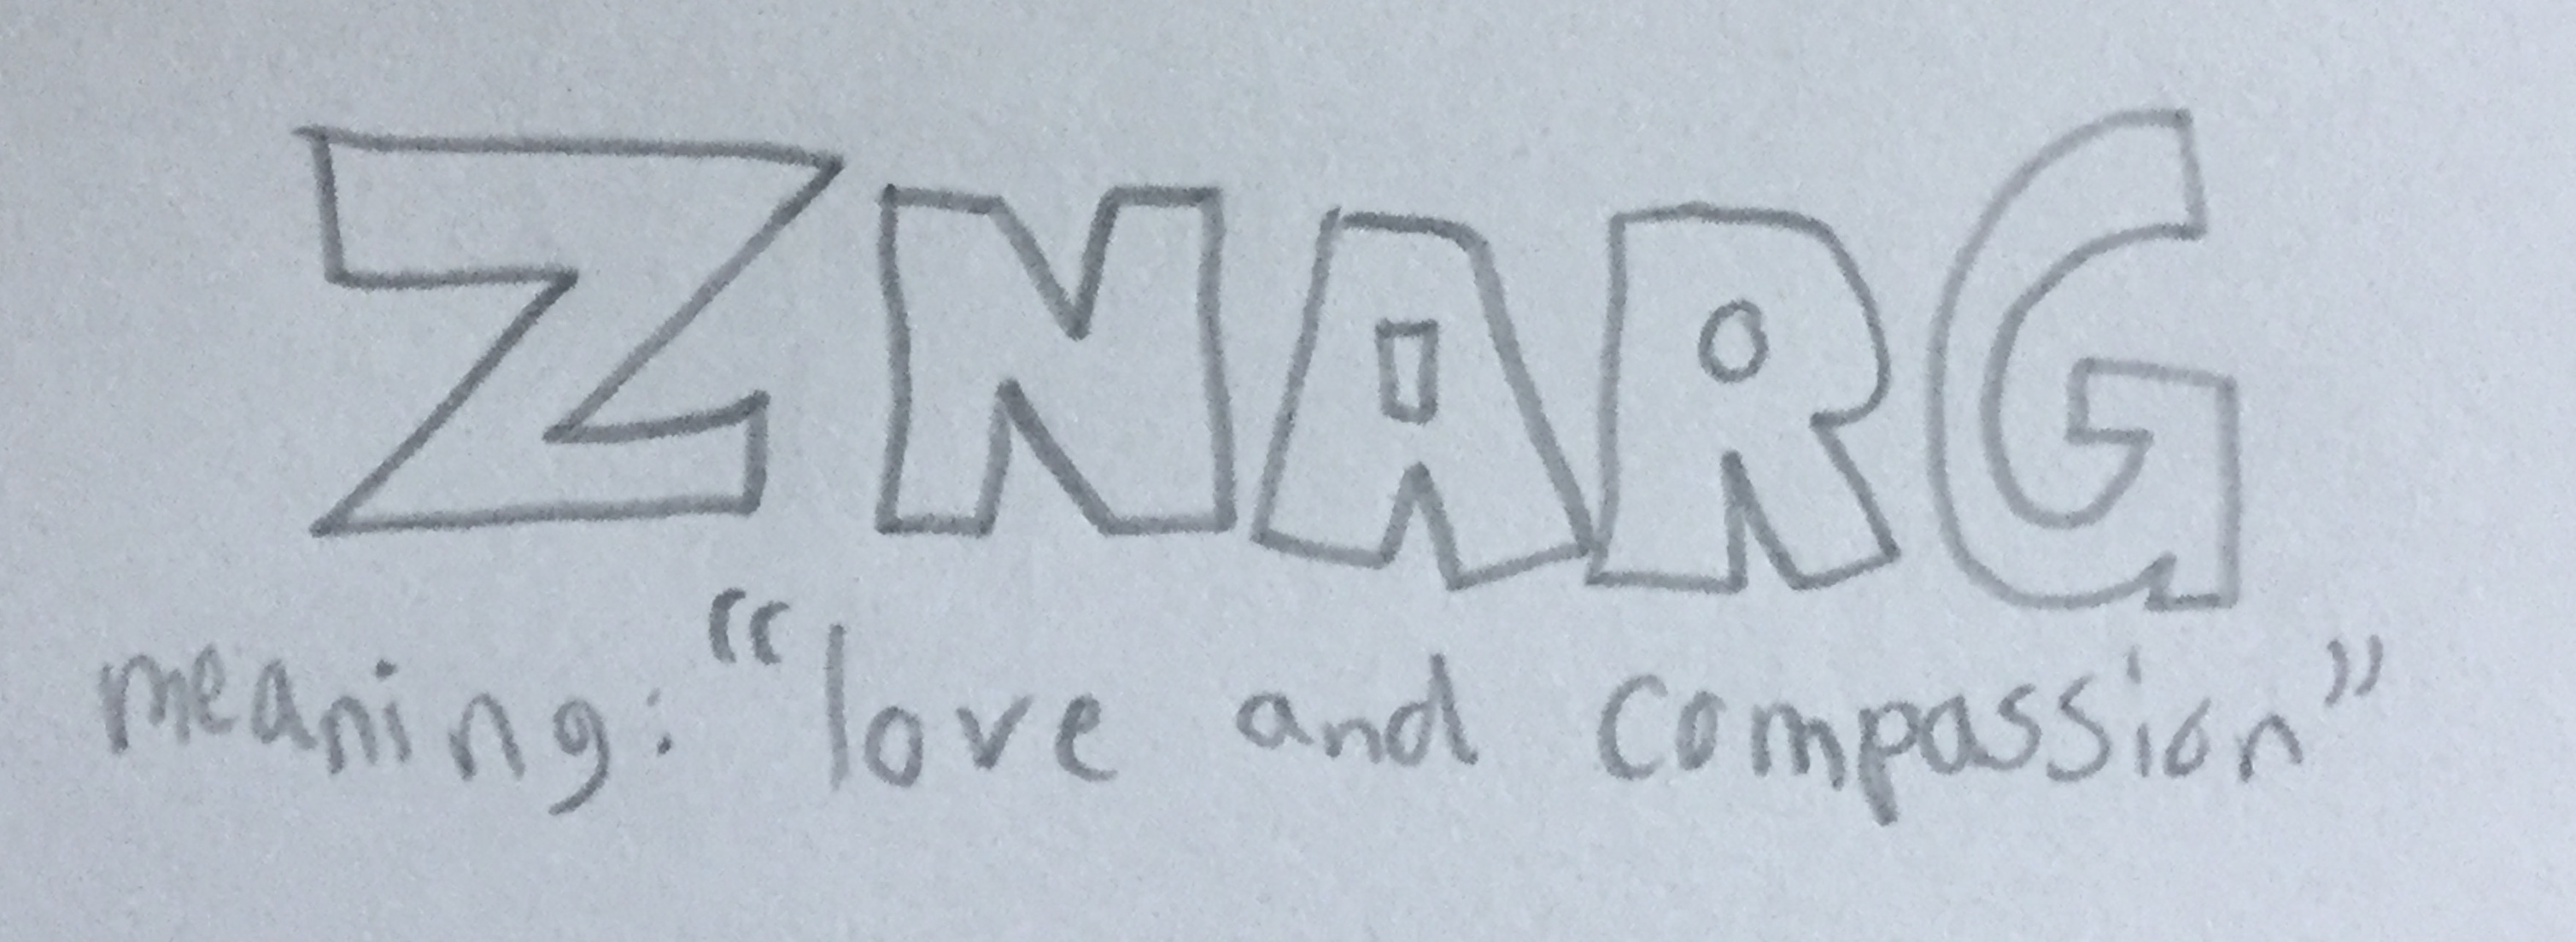 ZNARG
meaning: "love and compassion"